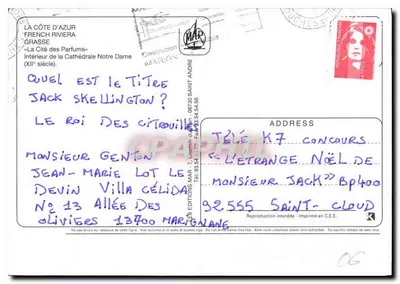 LA CÔTE D'AZUR
FRENCH RIVIERA
GRASSE
«La Cité des Parfums»
Intérieur de la Cathédrale Notre Dame
(XIIe siècle).
MAR
QUEL EST LE TITRE
JACK SKELLINGTON ?
LE ROI DES CITROUILLES
MONSIEUR GENTON
JEAN-MARIE LOT LE
DEVIN VILLA CÉLIDA
N° 13 ALLÉE DES
OLIVIERS 13700 MARIGNANE
LES EDITIONS MAR
06730 SAINT ANDRÉ
ADDRESS
TÉLÉ K7 CONCOURS
«L'ÉTRANGE NOËL DE
MONSIEUR JACK» BP400
92555 SAINT-CLOUD
Reproduction interdite - Imprimé en C.E.E.
K
06